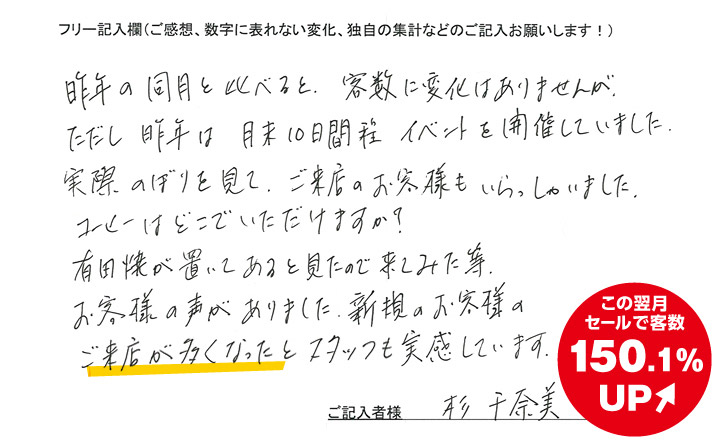 フリー記入欄(ご感想、数字に表れない変化、独自の集計などのご記入お願いします！)
昨年の同月と比べると、客数に変化はありませんが、
ただし 昨年は 月末10日間程 イベントを開催していました.
実際 のぼりを見て、ご来店のお客様もいらっしゃいました.
コーヒーはどこでいただけますか？
有田焼が置いてあると見たので来てみた等.
お客様の声がありました. 新規のお客様の
ご来店が多くなったとスタッフも実感しています.
この翌月
セールで客数
150.1%
UP↗
ご記入者様 杉 千奈美